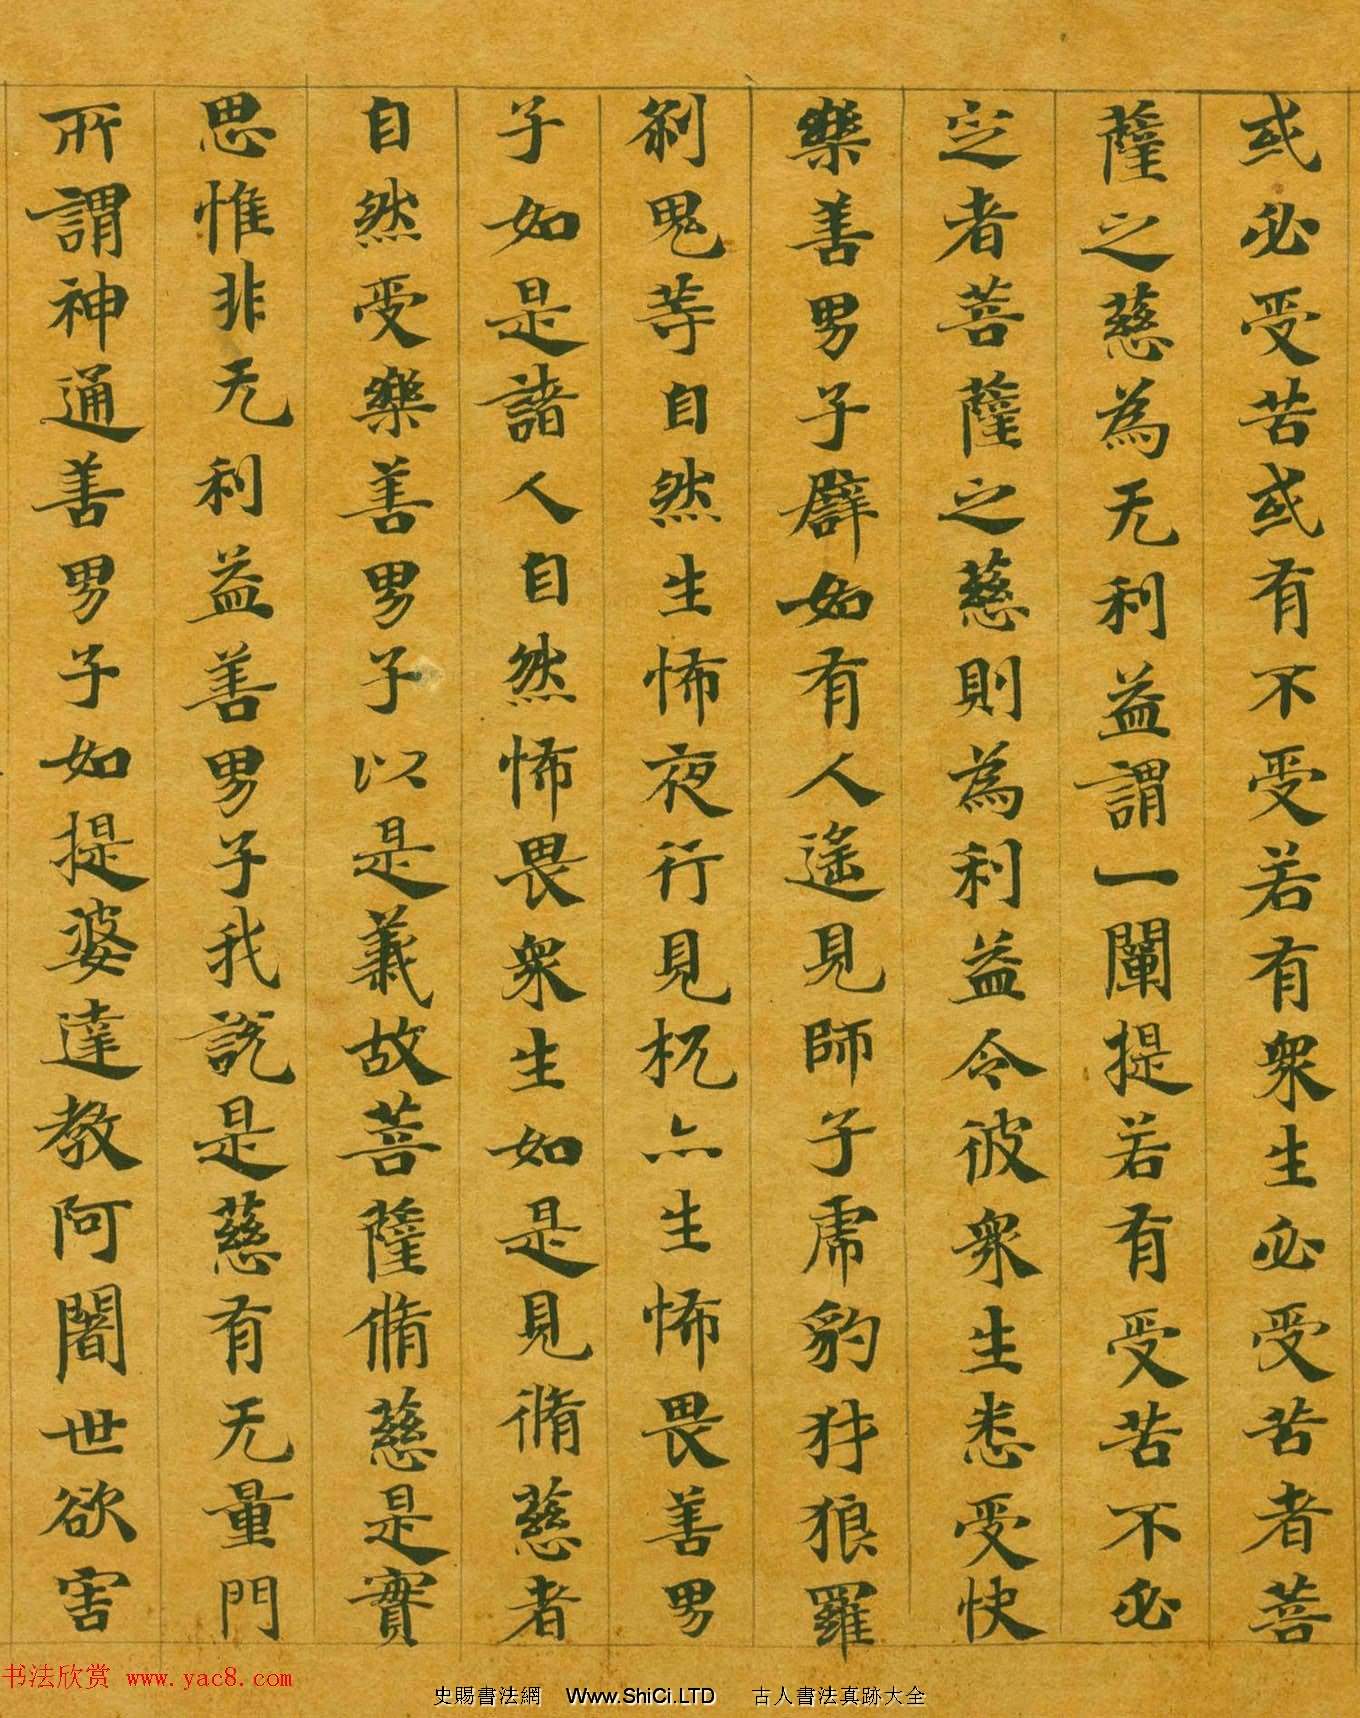 或必受苦或有不受若有衆生必受苦者菩
薩之慈為无利益謂一闡提若有受苦不必
定者菩薩之慈則為利益令彼衆生悉受快
樂善男子譬如有人遥見師子虎豹犲狼羅
刹鬼等自然生怖夜行見杌亦生怖畏善男
子如是諸人自然怖畏衆生如是見脩慈者
自然受樂善男子以是義故菩薩脩慈是實
思惟非无利益善男子我說是慈有无量門
所謂神通善男子如提婆達教阿闍世欲害
书法欣赏 www.yac8.com
史賜書法網 Www.ShiCi.LTD 古人書法真跡大全